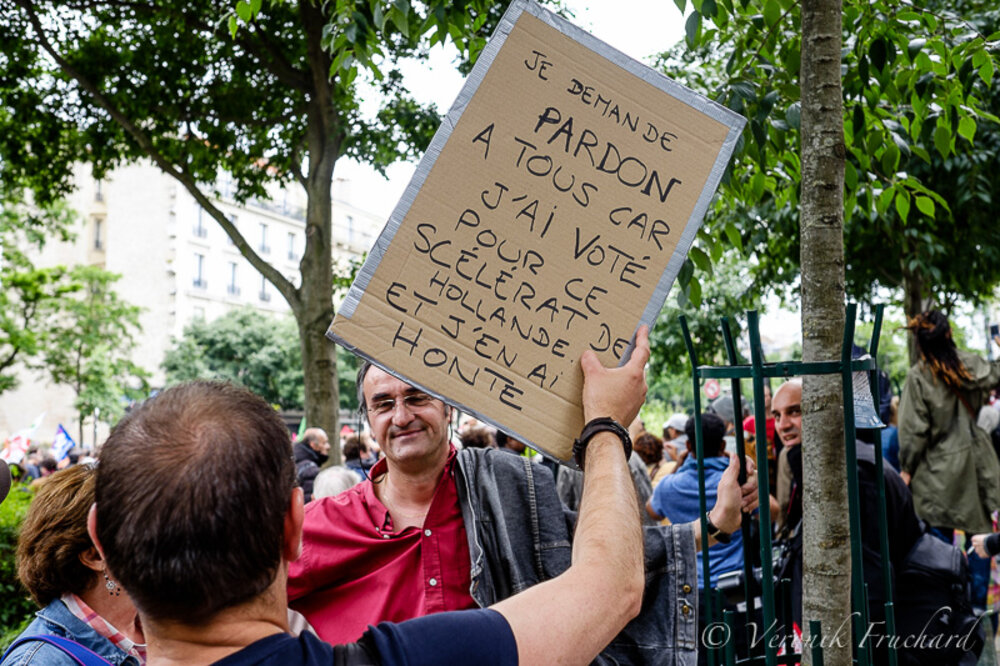 JE DEMANDE
PARDON
A TOUS CAR
J'Ai VOTÉ
POUR CE
SCÉLÉRAT DE
HOLLANDE.
ET J'EN Ai
HONTE
© Véronik Fruchard